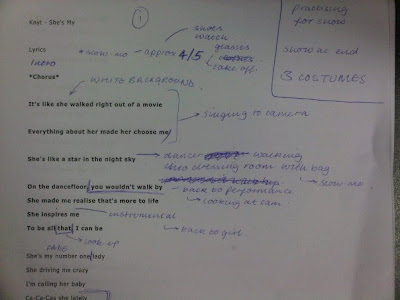 Kayt - She's My
1
shoes
watch
glasses
take off.
practising
for show
show at end
3 COSTUMES
Lyrics
* slow-mo - approx 4/5
Intro
*Chorus*
WHITE BACKGROUND
It's like she walked right out of a movie
singing to camera
Everything about her made her choose me
She's like a star in the night sky
dancer walking
into evening room with bag
slow mo
On the dancefloor, you wouldn't walk by
back to performance
She made me realise that's more to life
looking at cam
She inspires me
instrumental
To be all that I can be
back to girl
FADE
look up
She's my number one lady
She driving me crazy
I'm calling her baby
Ca-Ca-Cay she lately